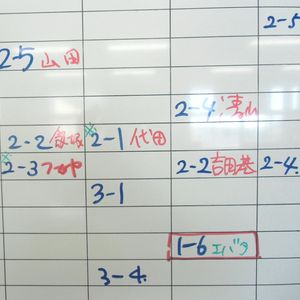 2-5
2-5 山田
2-4 青山
2-2 飯坂 ※2-1 代田
※2-3 2-2 吉田基 2-4
3-1
1-6 エバタ
3-4